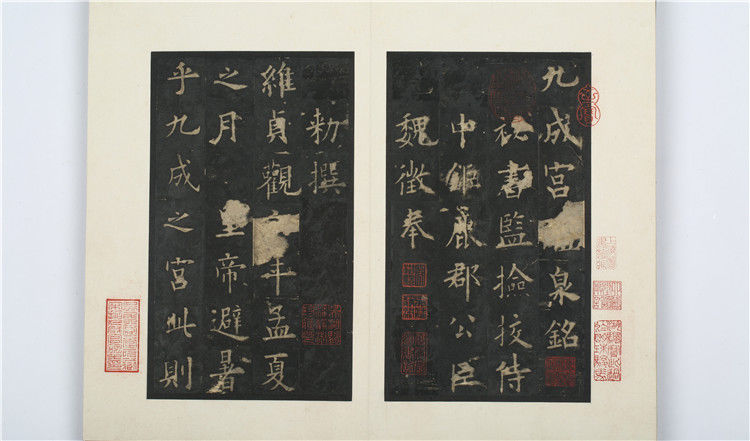 九成宮泉銘
祕書監撿挍侍
中鉅鹿郡公臣
魏徵奉
勑撰
維貞觀年孟夏
之月皇帝避暑
乎九成之宮此則